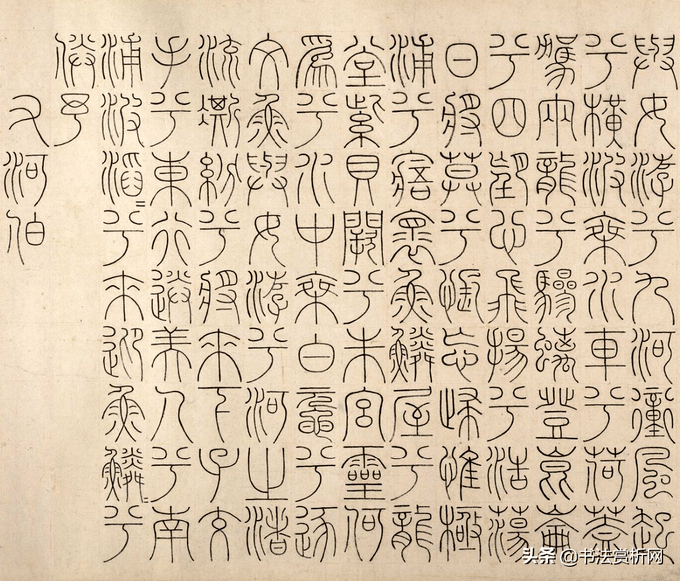 與女游兮九河衝風起
兮橫波乘水車兮荷蓋
駕兩龍兮驂螭登昆侖
兮四望心飛揚兮浩蕩
日將莫兮悵忘歸惟極
浦兮寤懷魚鱗屋兮龍
堂紫貝闕兮朱宮靈何
為兮水中乘白黿兮逐
文魚與女游兮河之渚
流澌紛兮將來下子交
手兮東行送美人兮南
浦波滔〻兮來迎魚鱗〻兮
媵予
右河伯
头条 @书法赏析网